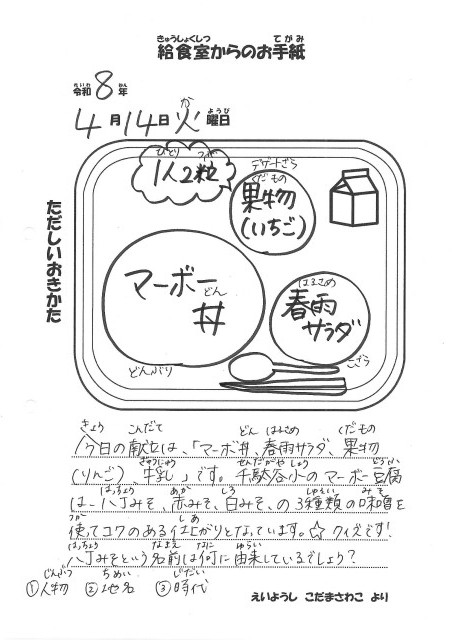 きゅうしょくしつ てがみ
給食室からのお手紙
れいわ ねん
令和8年
か ようび
4月14日火曜日
ひとり つぶ
1人2粒
デザートざら
くだもの
果物
(いちご)
ただしいおきかた
マーボー
どん
丼
どんぶり
はるさめ
春雨
サラダ
こざら
きょう こんだて どん はるさめ くだもの
今日の献立は、「マーボ丼、春雨サラダ、果物
ぎゅうにゅう せんだがやしょう どうふ
(りんご)、牛乳」です。千駄谷小のマーボー豆腐
はっちょう あか しろ しゅるい みそ
は、八丁みそ、赤みそ、白みそ、の3種類の味噌を
つか しあ
使てコクのある仕上がりとなっています。☆クイズです!
はっちょう なまえ なに ゆらい
八丁みそという名前は何に由来しているでしょう?
じんぶつ ちめい じだい
①人物 ②地名 ③時代
えいようし こだまさわこ より